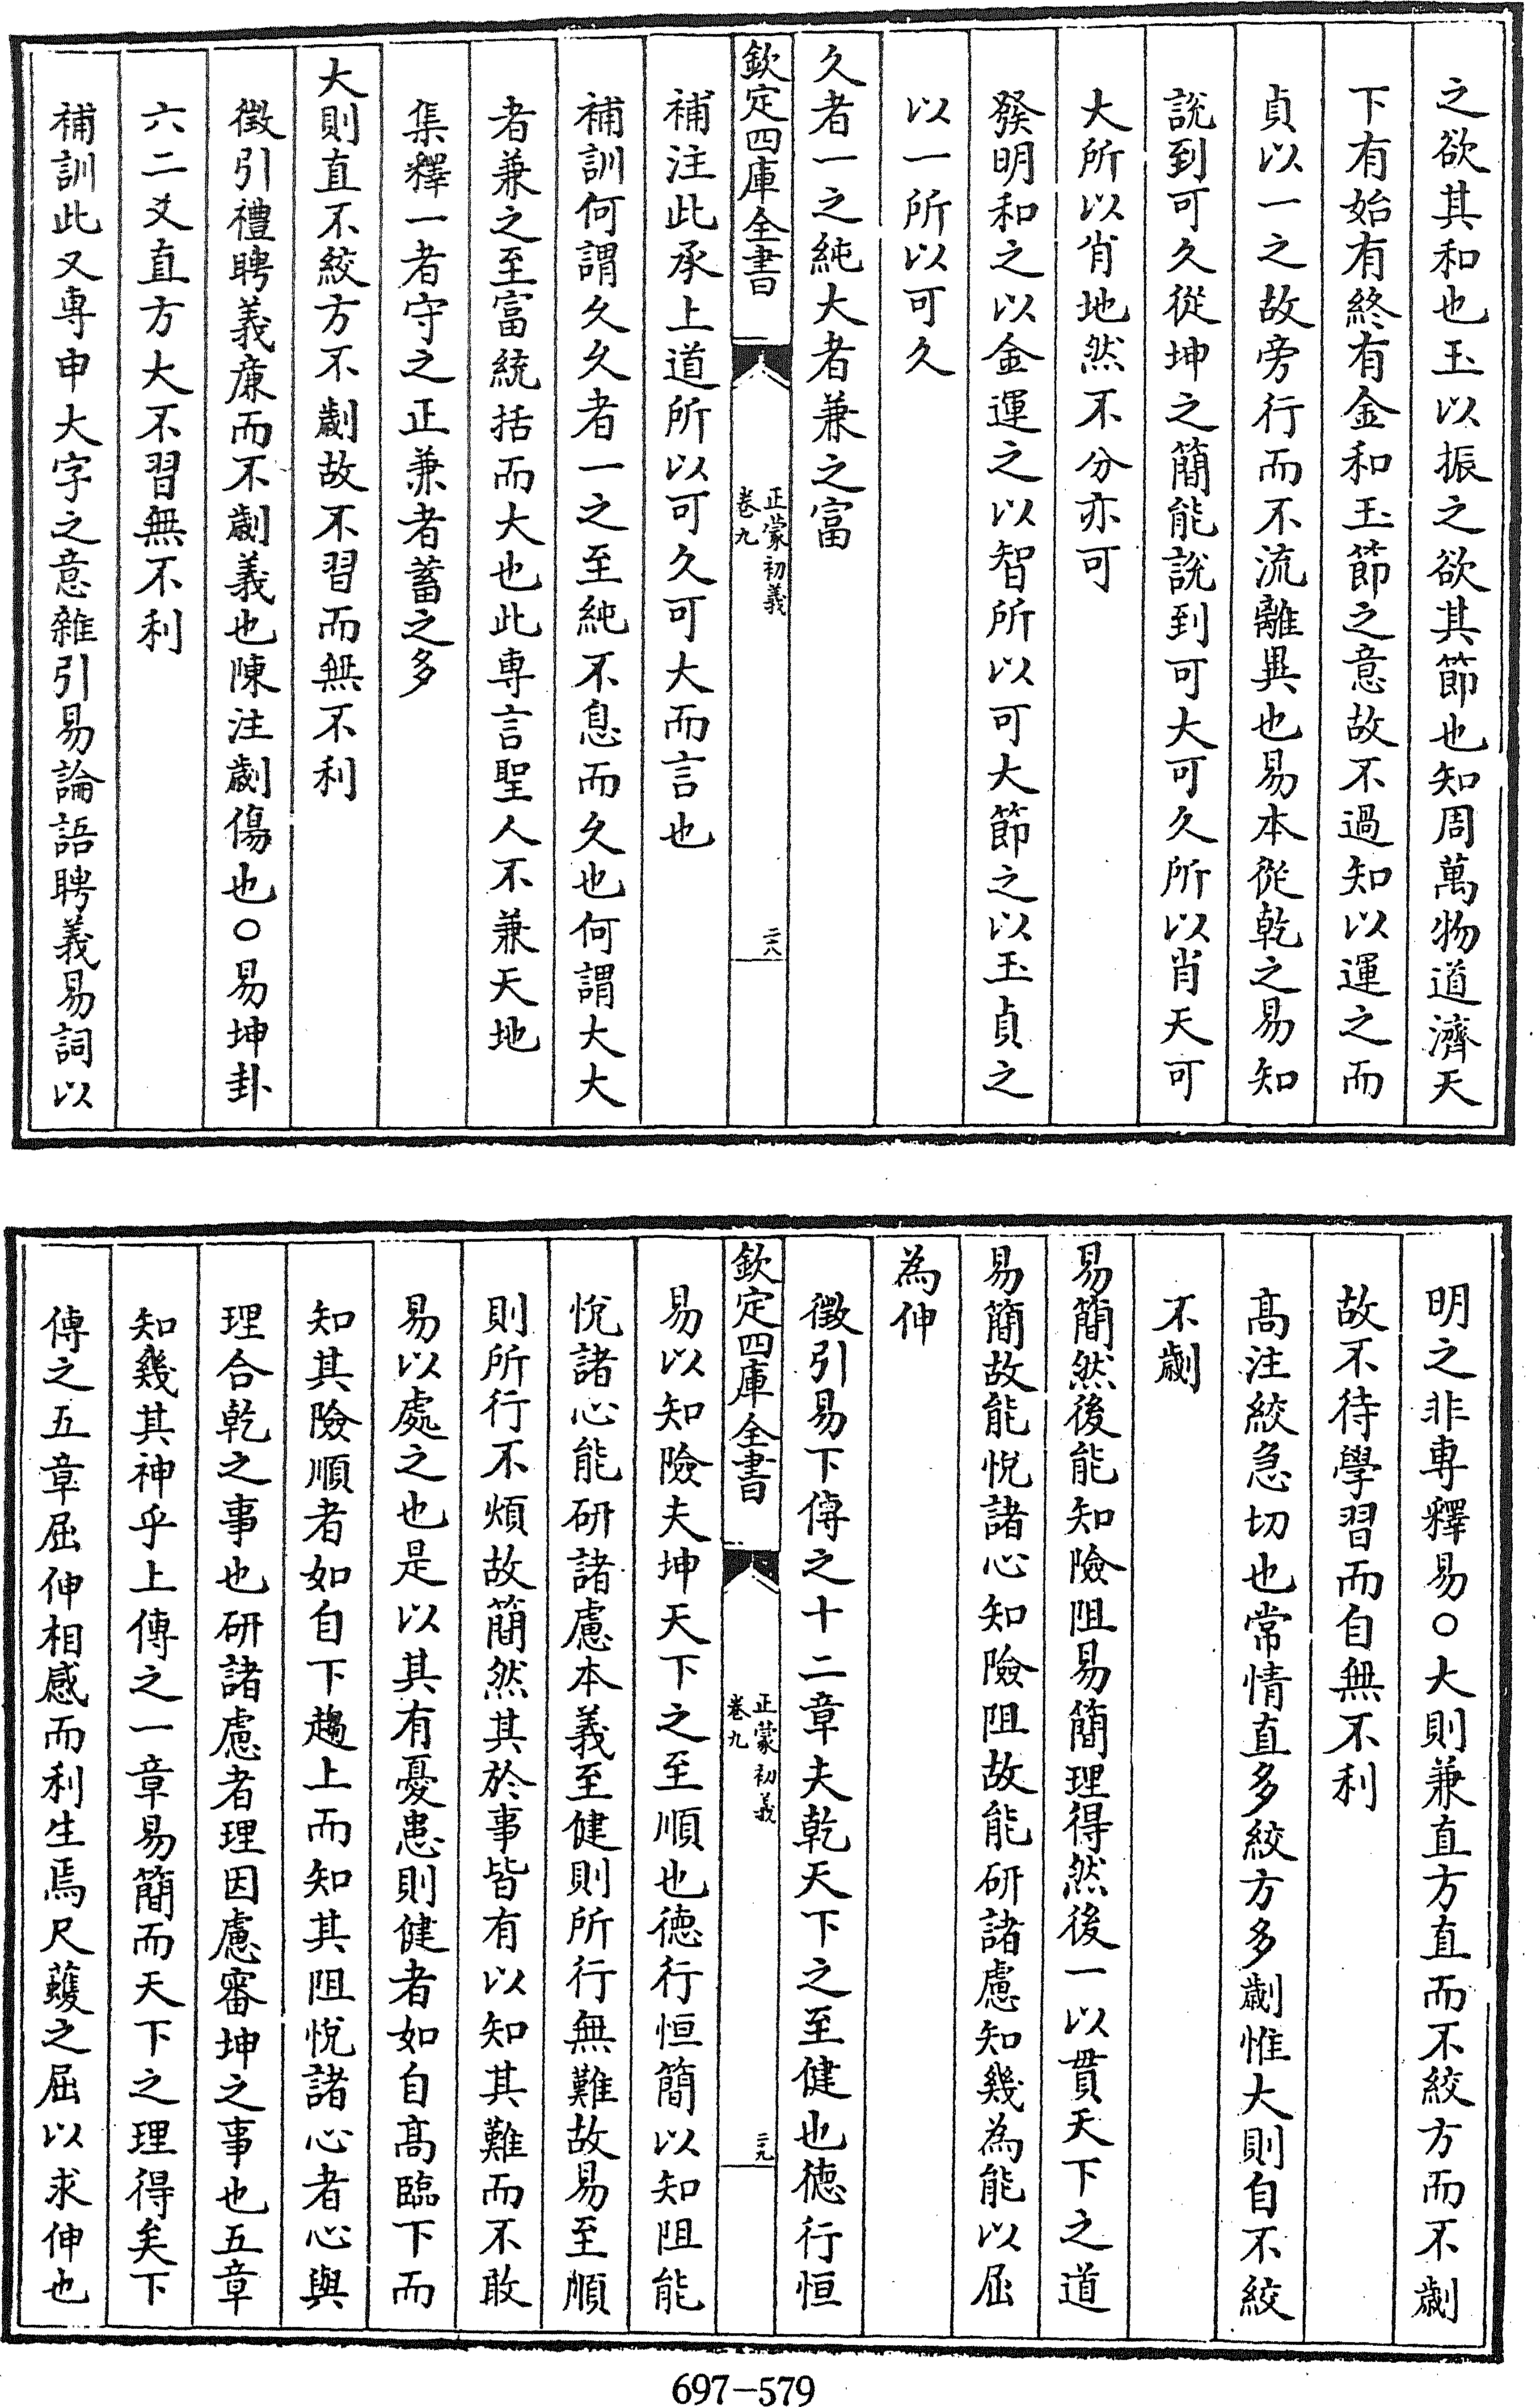 之欲其和也玉以振之欲其節也知周萬物道濟天
下有始有終有金和玉節之意故不過知以運之而
貞以一之故旁行而不流離異也易本從乾之易知
說到可久從坤之簡能說到可大可久所以肖天可
大所以肖地然不分亦可
發明和之以金運之以智所以可大節之以玉貞之
以一所以可久
久者一之純大者兼之富
欽定四庫全書
正蒙初義
卷九
二八
補注此承上道所以可久可大而言也
補訓何謂久久者一之至純不息而久也何謂大大
者兼之至富統括而大也此専言聖人不兼天地
集釋一者守之正兼者蓄之多
大則直不絞方不劌故不習而無不利
徵引禮聘義廉而不劌義也陳注劌傷也○易坤卦
六二爻直方大不習無不利
補訓此又専申大字之意雜引易論語聘義易詞以
明之非専釋易○大則兼直方直而不絞方而不劌
故不待學習而自無不利
高注絞急切也常情直多絞方多劌惟大則自不絞
不劌
易簡然後能知險阻易簡理得然後一以貫天下之道
易簡故能悅諸心知險阻故能研諸慮知幾為能以屈
為伸
徵引易下傳之十二章夫乾天下之至健也徳行恒
欽定四庫全書
正蒙初義
卷九
二九
易以知險夫坤天下之至順也徳行恒簡以知阻能
悅諸心能研諸慮本義至健則所行無難故易至順
則所行不煩故簡然其於事皆有以知其難而不敢
易以處之也是以其有憂患則健者如自高臨下而
知其險順者如自下趨上而知其阻悅諸心者心與
理合乾之事也研諸慮者理因慮審坤之事也五章
知幾其神乎上傳之一章易簡而天下之理得矣下
傳之五章屈伸相感而利生焉尺蠖之屈以求伸也
697-579